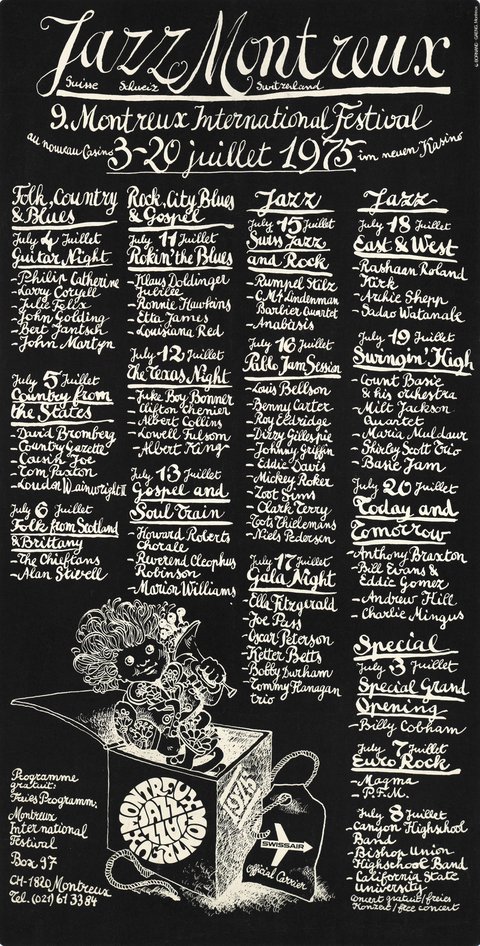 Jazz Montreux
Suisse Schweiz Switzerland
9. Montreux International Festival
au nouveau Casino 3-20 juillet 1975 im neuen Kasino
Folk, Country
& Blues
July 4 Juillet
Guitar Night
-Philip Catherine
-Larry Coryell
-Julie Felix
-John Golding
-Bert Jantsch
-John Martyn
July 5 Juillet
Country from
the States
-David Bromberg
-Country Gazette
-Cousin Joe
-Tom Paxton
-Loudon Wainwright III
July 6 Juillet
Folk from Scotland
& Brittany
-The Chieftans
-Alan Stivell
Rock, City Blues
& Gospel
July 11 Juillet
Rokin' the Blues
-Klaus Doldinger
Jubilee
-Ronnie Hawkins
-Etta James
-Louisiana Red
July 12 Juillet
The Texas Night
-Juke Boy Bonner
-Clifton Chenier
-Albert Collins
-Lowell Fulsom
-Albert King
July 13 Juillet
Gospel and
Soul Train
-Howard Roberts
Chorale
-Reverend Cleophus
Robinson
-Marion Williams
Jazz
July 15 Juillet
Swiss Jazz
and Rock
-Rumpel Stilz
-CM4 Lindenman
Barbier Quartet
-Anabasis
July 16 Juillet
Pablo Jam Session
-Louis Bellson
-Benny Carter
-Roy Eldridge
-Dizzy Gillespie
-Johnny Griffin
-Eddie Davis
-Mickey Roker
-Zoot Sims
-Clark Terry
-Toots Thielemans
-Niels Pedersen
July 17 Juillet
Gala Night
-Ella Fitzgerald
-Joe Pass
-Oscar Peterson
-Ketter Betts
-Bobby Durham
-Tommy Flanagan
trio
Jazz
July 18 Juillet
East & West
-Rashaan Roland
Kirk
-Archie Shepp
-Sadao Watanabe
July 19 Juillet
Swingin' High
-Count Basie
& his orchestra
-Milt Jackson
Quartet
-Maria Muldaur
-Shirley Scott Trio
-Basie Jam
July 20 Juillet
Today and
Tomorrow
-Anthony Braxton
-Bill Evans &
Eddie Gomez
-Andrew Hill
-Charlie Mingus
Special
July 3 Juillet
Special Grand
Opening
-Billy Cobham
July 7 Juillet
Euro Rock
-Magma
-P.F.M.
July 8 Juillet
-Canyon Highschool
Band
-Bishop Union
Highschool Band
-California State
University
Concert gratuit/freies
Konzert/free concert
Programme
gratuit:
Freies Programm:
Montreux
International
Festival
Box 97
CH-1820 Montreux
Tel. (021) 61 33 84
MONTREUX JAZZ MONTREUX JAZZ
1975
SWISSAIR
Official Carrier